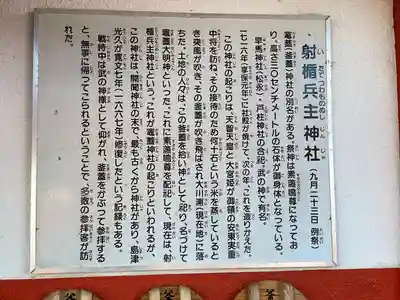 射楯兵主神社(九月二十三日 例祭)
いたてつわものぬしじんじゃ
竈蓋(釜蓋)神社の別名がある。祭神は素盞鳴尊になってお
り、高さ三〇センチメートルの石体が御身体となっている。
早馬神社(松永)・戸柱神社の合祀。武の神で有名。
一七一六年(享保元年)に社殿が焼けて、次の年、これを造りかえた。
この神社の起こりは、天智天皇と大宮姫が御領の安東実重
中将を訪ね、その接待のため何十石という米を蒸していると
き突風が吹き、その釜蓋が吹き飛ばされ大川浦(現在地)に落
ちた。土地の人々は、この釜蓋を拾い神として祀り、名づけて
竈蓋大明神といった。これに素盞鳴尊を配祀して、現在は、射
楯兵主神社という。これが竈蓋神社の起こりといわれるが、
この神社は、開聞神社の末で、最も古くから神社があり、島津
光久が寛文七年(一六六七年)修復したという記録もある。
戦時中は武の神様として仰がれ、釜蓋をかぶって参拝する
と、無事に帰ってこられるということで、多数の参拝客が訪
れた。
釜
釜